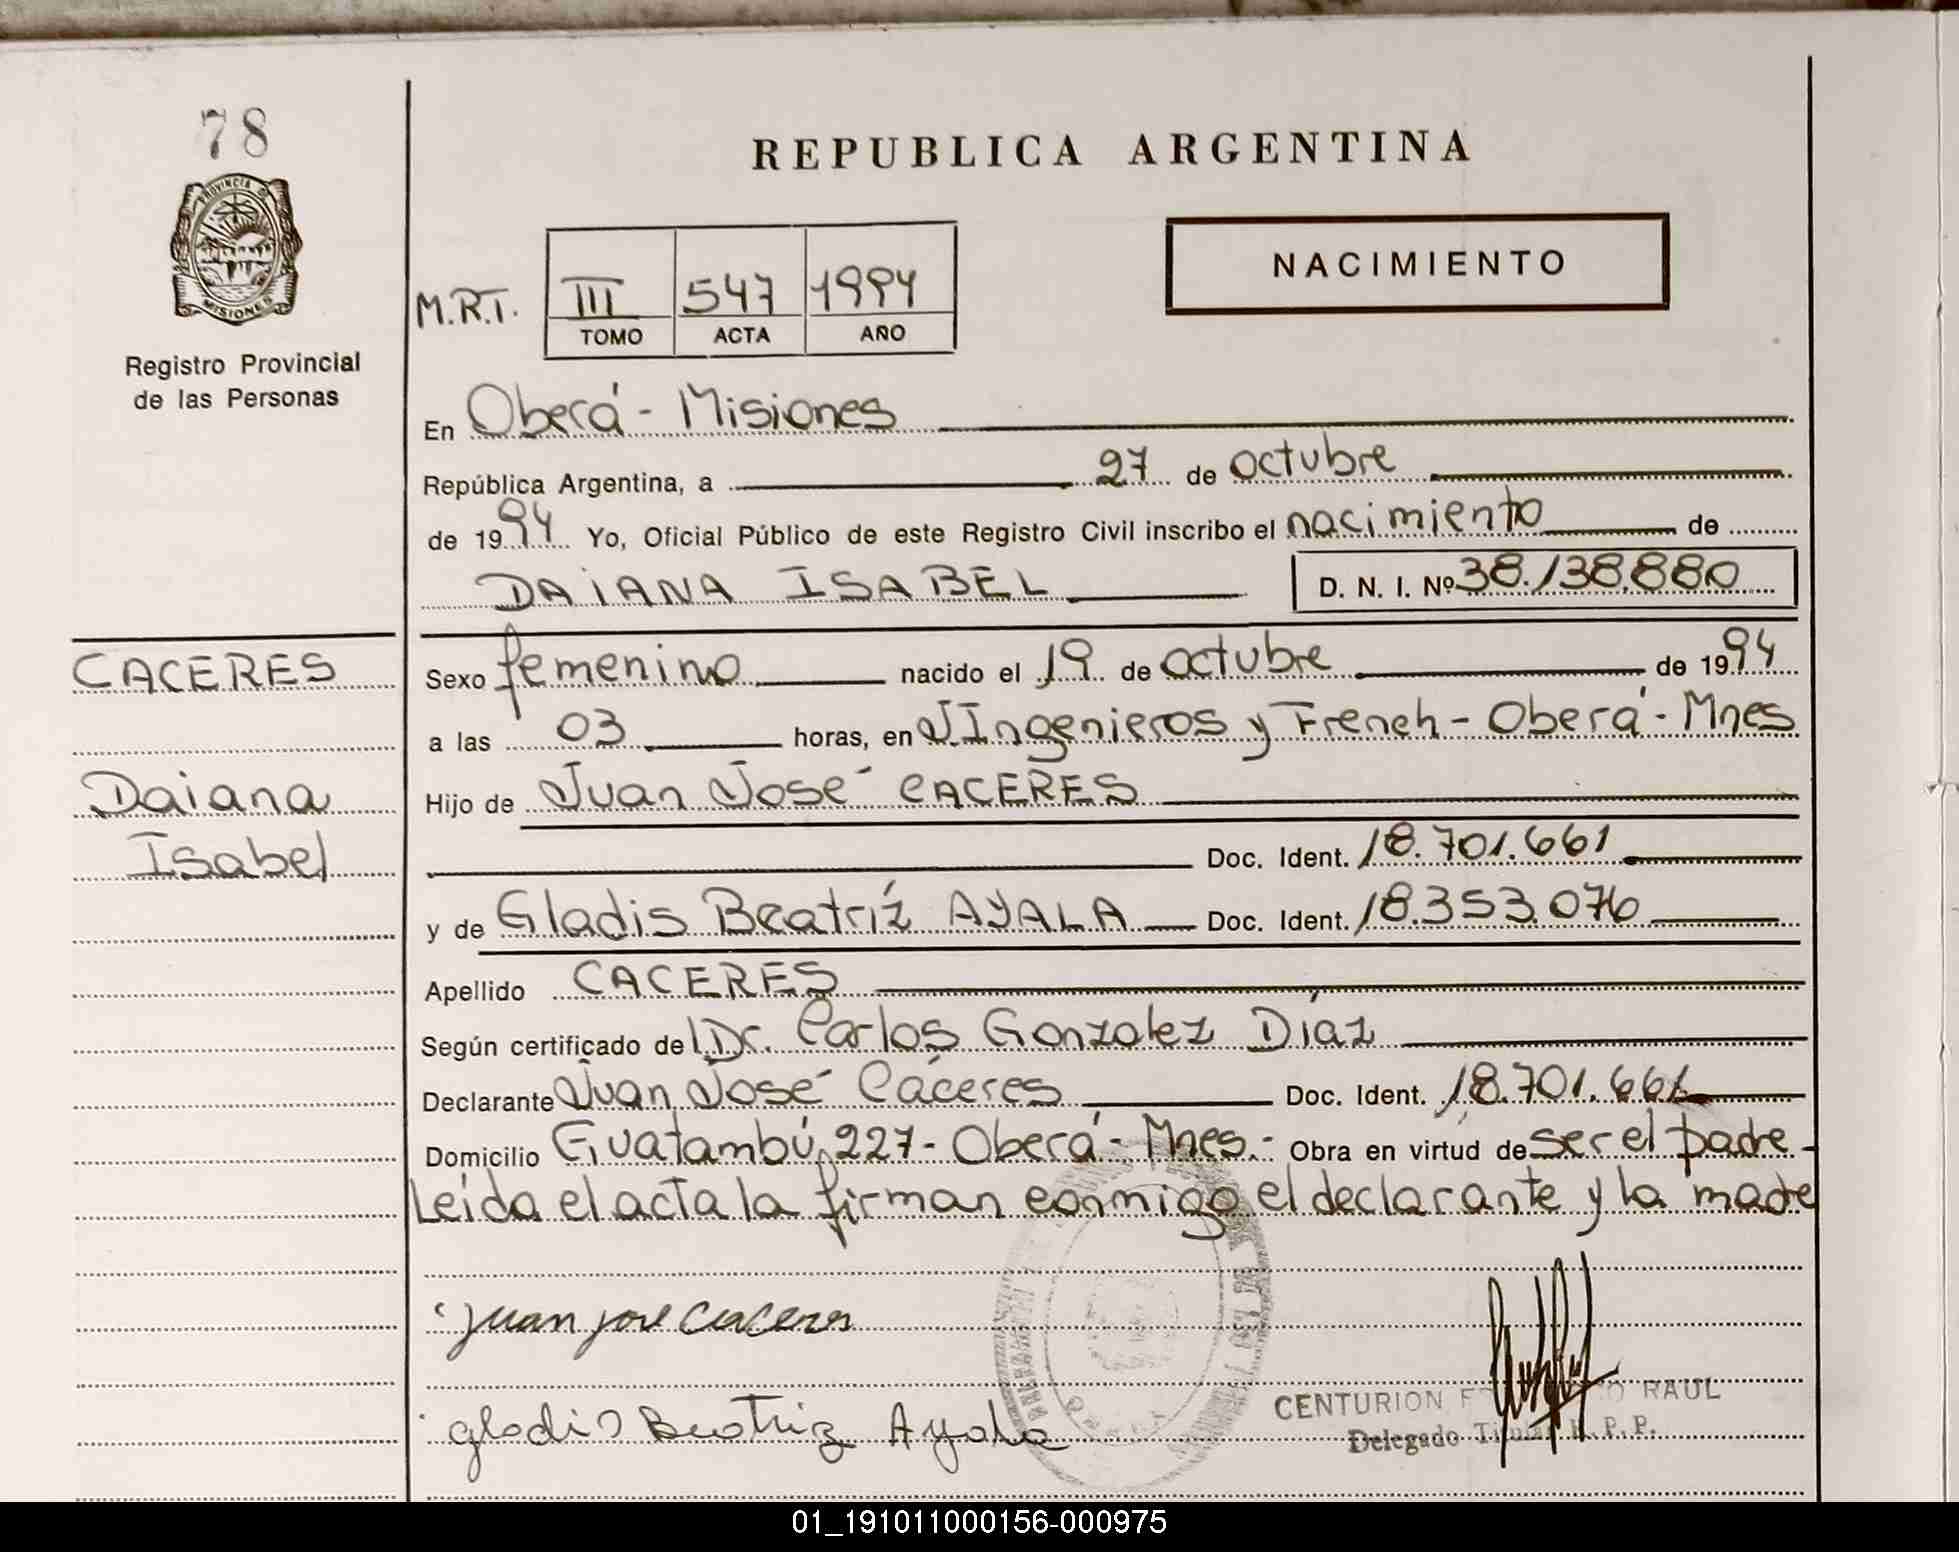 78
PROVINCIA DE
MISIONES
Registro Provincial
de las Personas
REPUBLICA ARGENTINA
NACIMIENTO
M.R.T. III 547 1994
TOMO ACTA AÑO
En Oberá - Misiones
República Argentina, a 27 de octubre
de 1994 Yo, Oficial Público de este Registro Civil inscribo el nacimiento de
DAIANA ISABEL D. N. I. Nº 38.138.880
CACERES
Daiana
Isabel
Sexo femenino nacido el 19 de octubre de 1994
a las 03 horas, en J.Ingenieros y French - Oberá - Mnes
Hijo de Juan José CACERES
Doc. Ident. 18.701.661
y de Gladis Beatríz AYALA Doc. Ident. 18.353.076
Apellido CACERES
Según certificado de Dr. Carlos Gonzalez Díaz
Declarante Juan José Cáceres Doc. Ident. 18.701.661
Domicilio Guatambú 227 - Oberá - Mnes.- Obra en virtud de ser el padre -
Leída el acta la firman conmigo el declarante y la madre
Juan jose Caceres
Gladis Beatriz Ayala
CENTURION RAUL
Delegado Titular R. P. P.
01_191011000156-000975